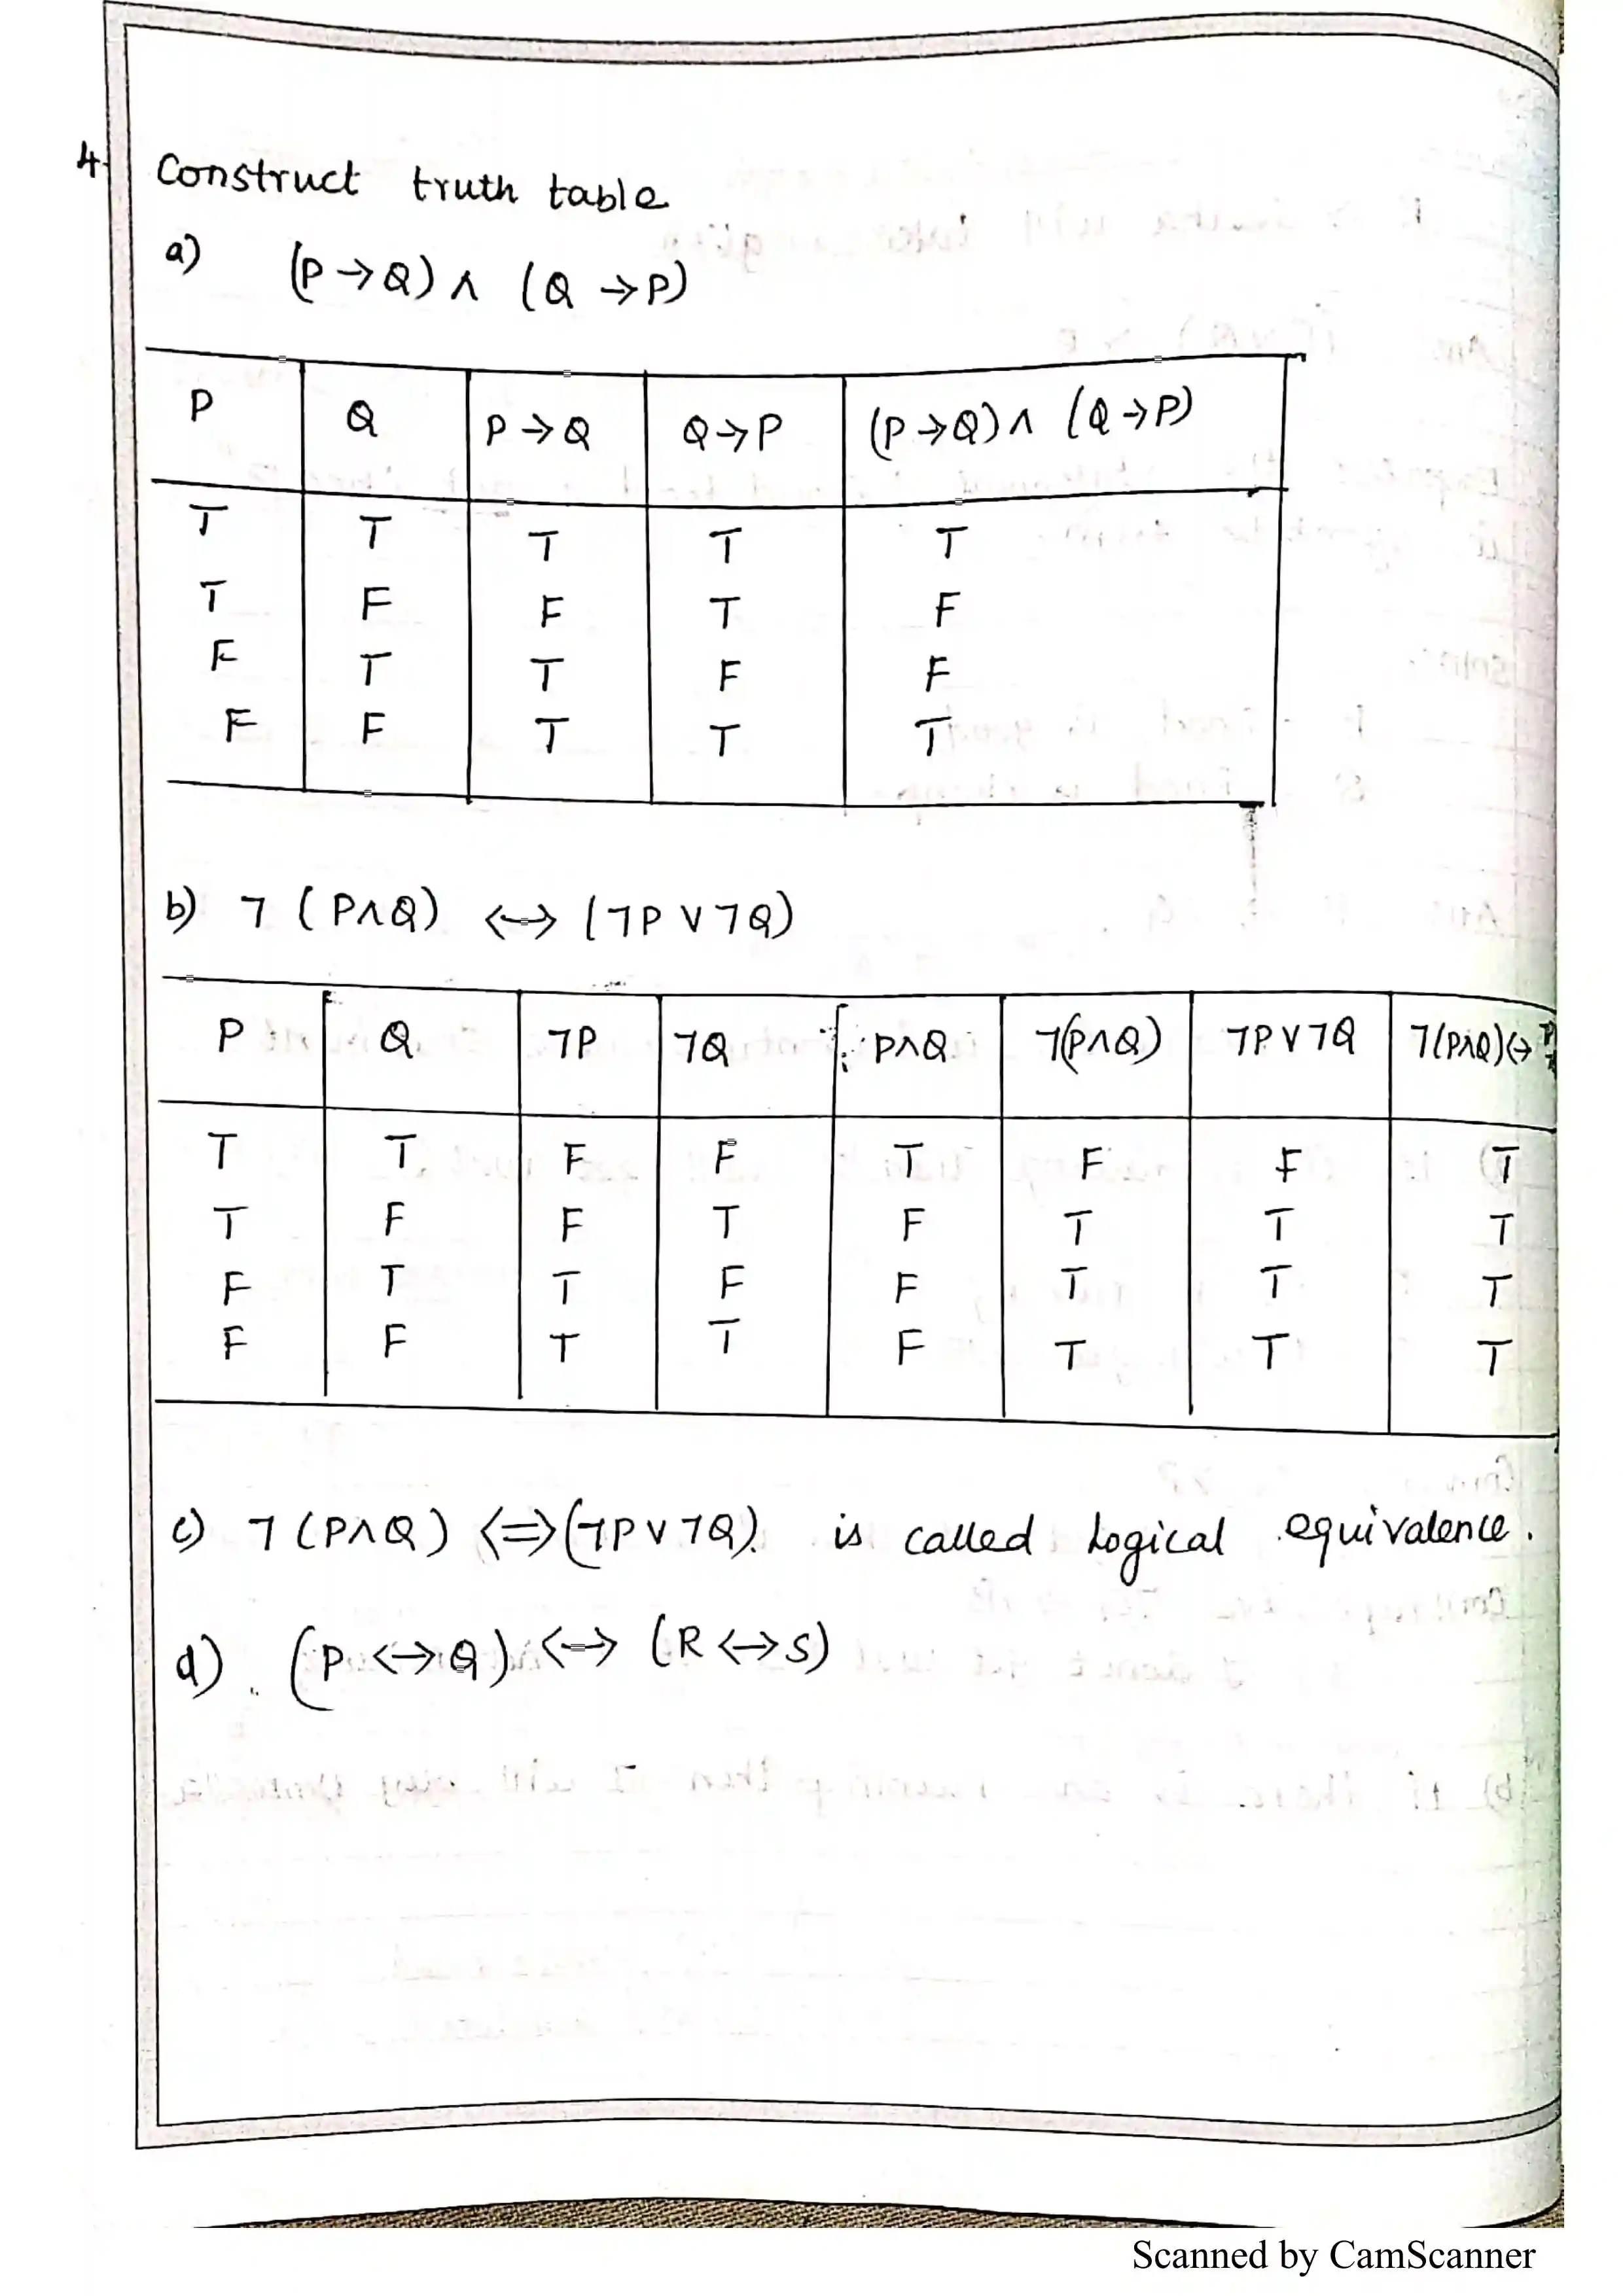 4. Construct truth table
a) (P → Q) ∧ (Q → P)
P Q P → Q Q → P (P → Q) ∧ (Q → P)
T T T T T
T F F T F
F T T F F
F F T T T
b) ¬ (P∧Q) ↔ (¬P ∨ ¬Q)
P Q ¬P ¬Q P∧Q ¬(P∧Q) ¬P ∨ ¬Q ¬(P∧Q) ↔
T T F F T F F T
T F F T F T T T
F T T F F T T T
F F T T F T T T
c) ¬ (P∧Q) ⇔ (¬P ∨ ¬Q). is called Logical equivalence.
d). (P ↔ Q) ↔ (R ↔ S)
Scanned by CamScanner